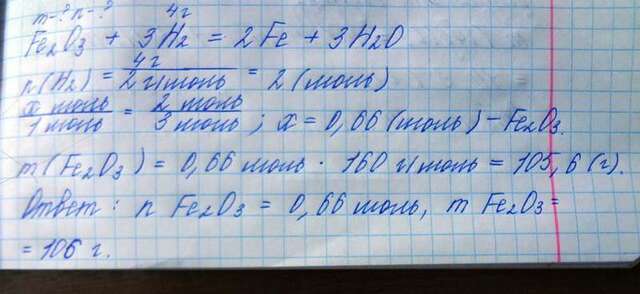 m-? n-? 4г
Fe₂O₃ + 3H₂ = 2Fe + 3H₂O
n(H₂) = 4г / 2 г/моль = 2 (моль)
x моль / 1 моль = 2 моль / 3 моль ; x = 0,66 (моль) - Fe₂O₃.
m(Fe₂O₃) = 0,66 моль · 160 г/моль = 105,6 (г).
Ответ: n Fe₂O₃ = 0,66 моль, m Fe₂O₃ =
= 106 г.